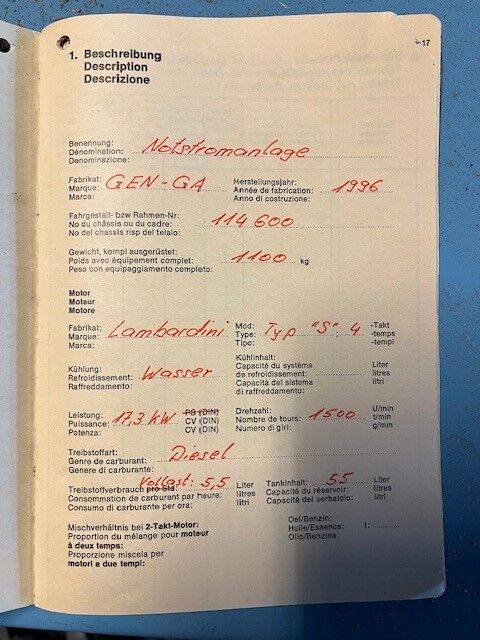 17
1. Beschreibung
Description
Descrizione
Benennung:
Dénomination: Notstromanlage
Denominazione:
Fabrikat: Herstellungsjahr:
Marque: GEN-GA Année de fabrication: 1996
Marca: Anno di costruzione:
Fahrgestell- bzw Rahmen-Nr:
No du châssis ou du cadre: 114 600
No del chassis risp del telaio:
Gewicht, kompl ausgerüstet:
Poids avec équipement complet: 1100 kg
Peso con equipaggiamento completo:
Motor
Moteur
Motore
Fabrikat: Mod: -Takt
Marque: Lambardini Type: Typ "S": 4 -temps
Marca: Tipo: -tempi
Kühlinhalt:
Kühlung: Capacité du système Liter
Refroidissement: Wasser de refroidissement: litres
Raffreddamento: Capacità del sistema litri
di raffreddamento:
Leistung: PS (DIN) Drehzahl: U/min
Puissance: 17,3 kW CV (DIN) Nombre de tours: 1500 t/min
Potenza: CV (DIN) Numero di giri: g/min
Treibstoffart:
Genre de carburant: Diesel
Genere di carburante:
Vollast: 5,5 55
Treibstoffverbrauch pro Std: Liter Tankinhalt: Liter
Consommation de carburant par heure: litres Capacité du réservoir: litres
Consumo di carburante per ora: litri Capacità del serbatoio: litri
Mischverhältnis bei 2-Takt-Motor: Oel/Benzin:
Proportion du mélange pour moteur Huile/Essence: 1:
à deux temps: Olio/Benzina:
Proporzione miscela per
motori a due tempi: